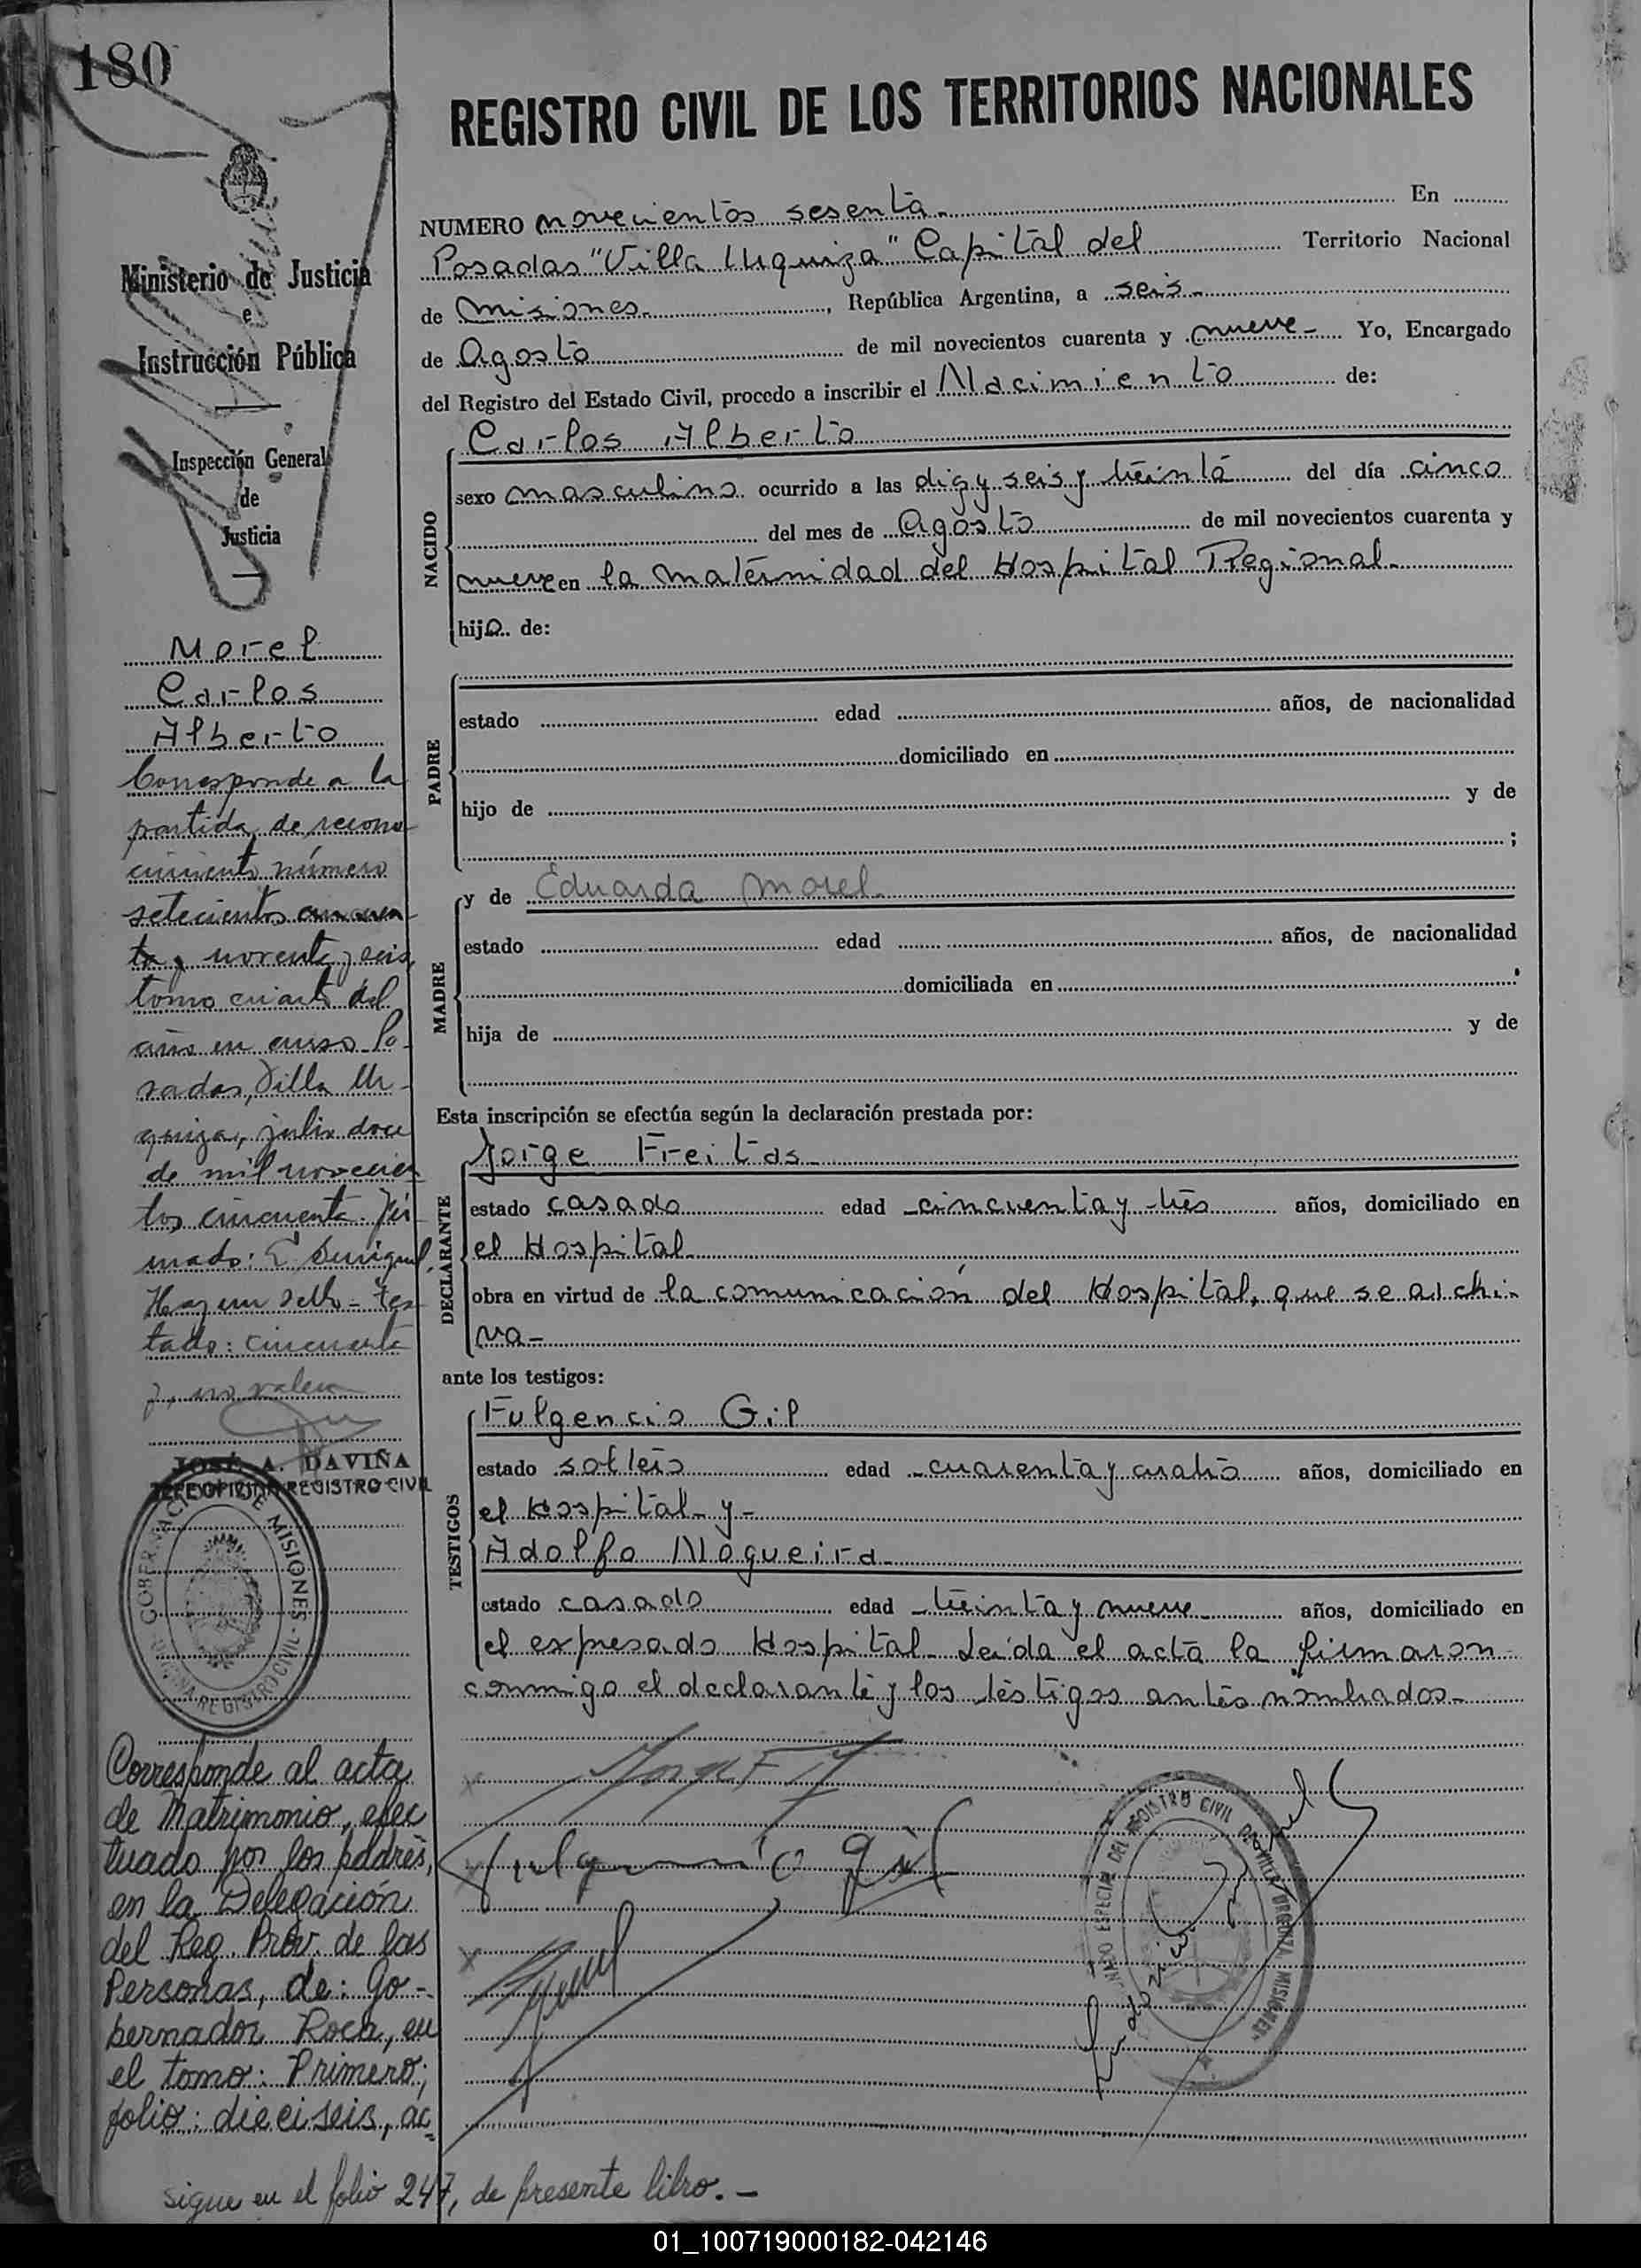 180
REGISTRO CIVIL DE LOS TERRITORIOS NACIONALES
Ministerio de Justicia
e
Instrucción Pública
Inspección General
de
Justicia
Morel
Carlos
Alberto
Corresponde a la
partida de recono
cimiento número
setecientos cincuen
ta y noventa y seis,
tomo cuarto del
año en curso. Po-
sadas, Villa Ur-
quiza, julio doce
de mil novecien
tos cincuenta. Fir
mado:
Hay un sello - Tes
tado: cincuenta
y, no valen
JOSÉ A. DAVIÑA
JEFE OFICINA REGISTRO CIVIL
GOBERNACION DE MISIONES
OFICINA REGISTRO CIVIL
Corresponde al acta
de Matrimonio, efec
tuado por los padres,
en la Delegación
del Reg. Prov. de las
Personas, de: Go-
bernador Roca, en
el tomo: Primero;
folio: dieciseis, ac
sigue en el folio 247, de presente libro. -
NUMERO novecientos sesenta- En
Posadas "Villa Urquiza" Capital del Territorio Nacional
de Misiones- , República Argentina, a seis-
de Agosto de mil novecientos cuarenta y nueve- Yo, Encargado
del Registro del Estado Civil, procedo a inscribir el Nacimiento de:
NACIDO
Carlos Alberto
sexo masculino ocurrido a las diez y seis y treinta del día cinco
del mes de Agosto de mil novecientos cuarenta y
nueve en la maternidad del Hospital Regional-
hijo de:
PADRE
estado edad años, de nacionalidad
domiciliado en
hijo de y de
;
MADRE
y de Eduarda Morel-
estado edad años, de nacionalidad
domiciliada en
hija de y de
Esta inscripción se efectúa según la declaración prestada por:
DECLARANTE
Jorge Freitas-
estado casado edad -cincuenta y tres años, domiciliado en
el Hospital-
obra en virtud de la comunicación del Hospital, que se archi-
va-
ante los testigos:
TESTIGOS
Fulgencio Gil
estado soltero edad -cuarenta y cuatro años, domiciliado en
el Hospital- y-
Adolfo Nogueira-
estado casado edad -treinta y nueve- años, domiciliado en
el expresado Hospital- Leída el acta la firmaron
conmigo el declarante y los testigos antes nombrados-
Fulgencio Gil
ESPECIAL DEL REGISTRO CIVIL DE VILLA URQUIZA MISIONES
01_100719000182-042146